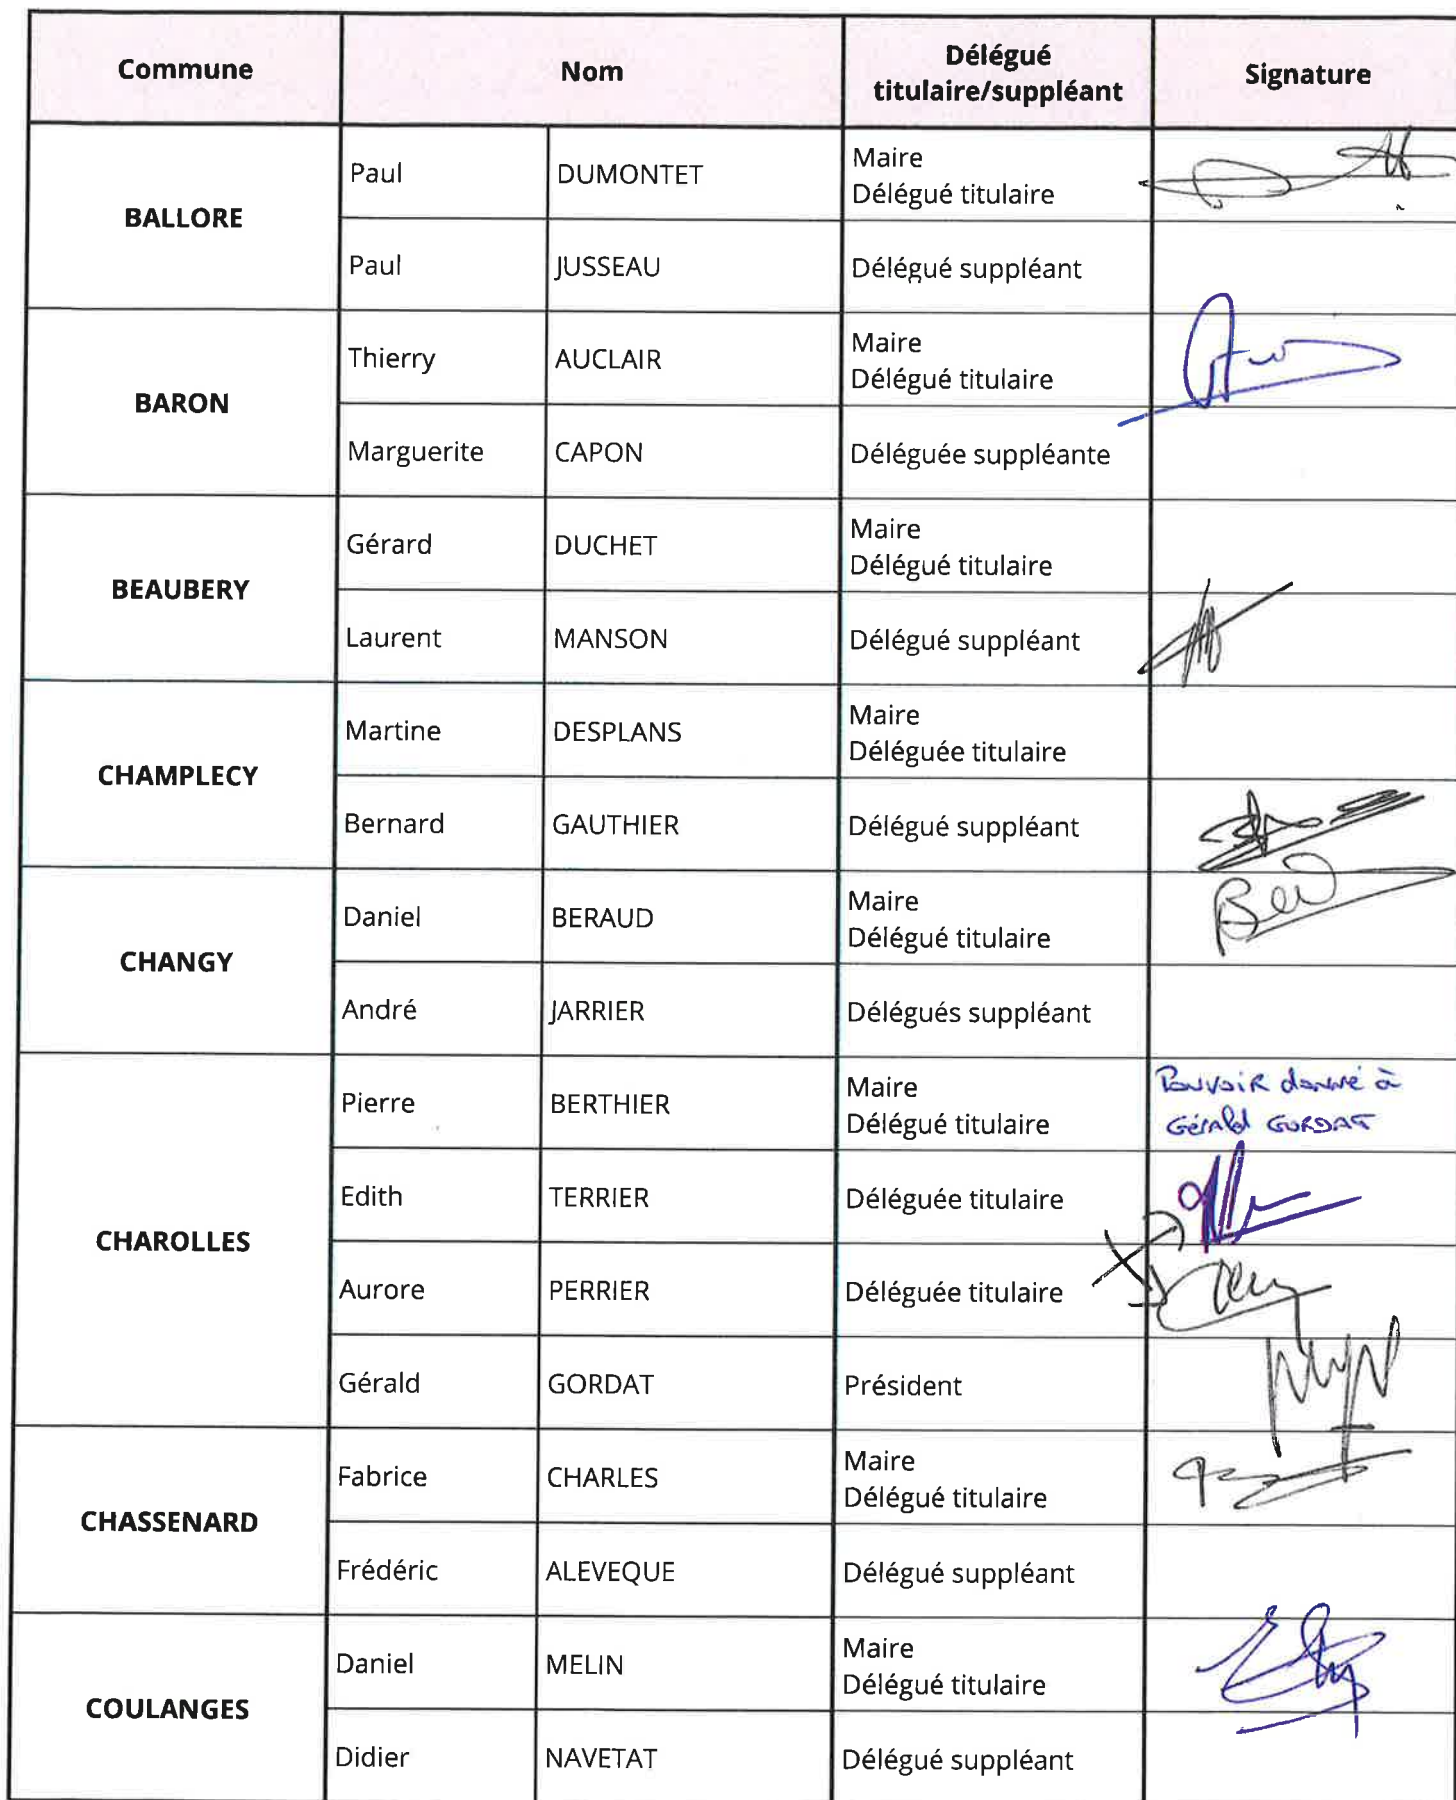 Commune
Nom
Délégué
titulaire/suppléant
Signature
BALLORE
Paul
DUMONTET
Maire
Délégué titulaire
Paul
JUSSEAU
Délégué suppléant
BARON
Thierry
AUCLAIR
Maire
Délégué titulaire
Marguerite
CAPON
Déléguée suppléante
BEAUBERY
Gérard
DUCHET
Maire
Délégué titulaire
Laurent
MANSON
Délégué suppléant
CHAMPLECY
Martine
DESPLANS
Maire
Déléguée titulaire
Bernard
GAUTHIER
Délégué suppléant
CHANGY
Daniel
BERAUD
Maire
Délégué titulaire
André
JARRIER
Délégués suppléant
CHAROLLES
Pierre
BERTHIER
Maire
Délégué titulaire
Pouvoir donné à
Gérald GORDAT
Edith
TERRIER
Déléguée titulaire
Aurore
PERRIER
Déléguée titulaire
Gérald
GORDAT
Président
CHASSENARD
Fabrice
CHARLES
Maire
Délégué titulaire
Frédéric
ALEVEQUE
Délégué suppléant
COULANGES
Daniel
MELIN
Maire
Délégué titulaire
Didier
NAVETAT
Délégué suppléant